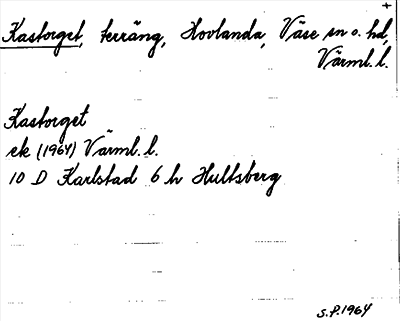 +
Kastorget, terräng, Hovlanda, Väse sn o. hd,
Värml. l.
Kastorget
ek (1964) Värml. l.
10 D Karlstad 6 h Hultsberg
S.P. 1964